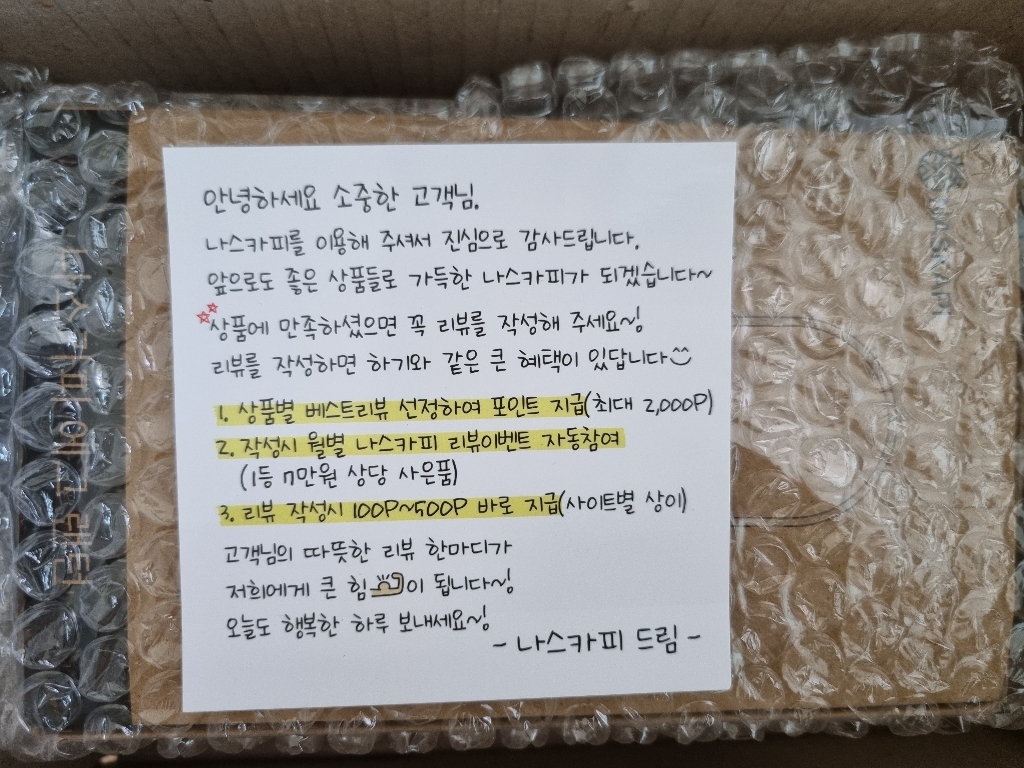 안녕하세요 소중한 고객님.
나스카피를 이용해 주셔서 진심으로 감사드립니다.
앞으로도 좋은 상품들로 가득한 나스카피가 되겠습니다~
상품에 만족하셨으면 꼭 리뷰를 작성해 주세요~!
리뷰를 작성하면 하기와 같은 큰 혜택이 있답니다
1. 상품별 베스트리뷰 선정하여 포인트 지급(최대 2,000P)
2. 작성시 월별 나스카피 리뷰이벤트 자동참여
(1등 7만원 상당 사은품)
3. 리뷰 작성시 100P~500P 바로 지급(사이트별 상이)
고객님의 따뜻한 리뷰 한마디가
저희에게 큰 힘이 됩니다~!
오늘도 행복한 하루 보내세요~!
- 나스카피 드림 -